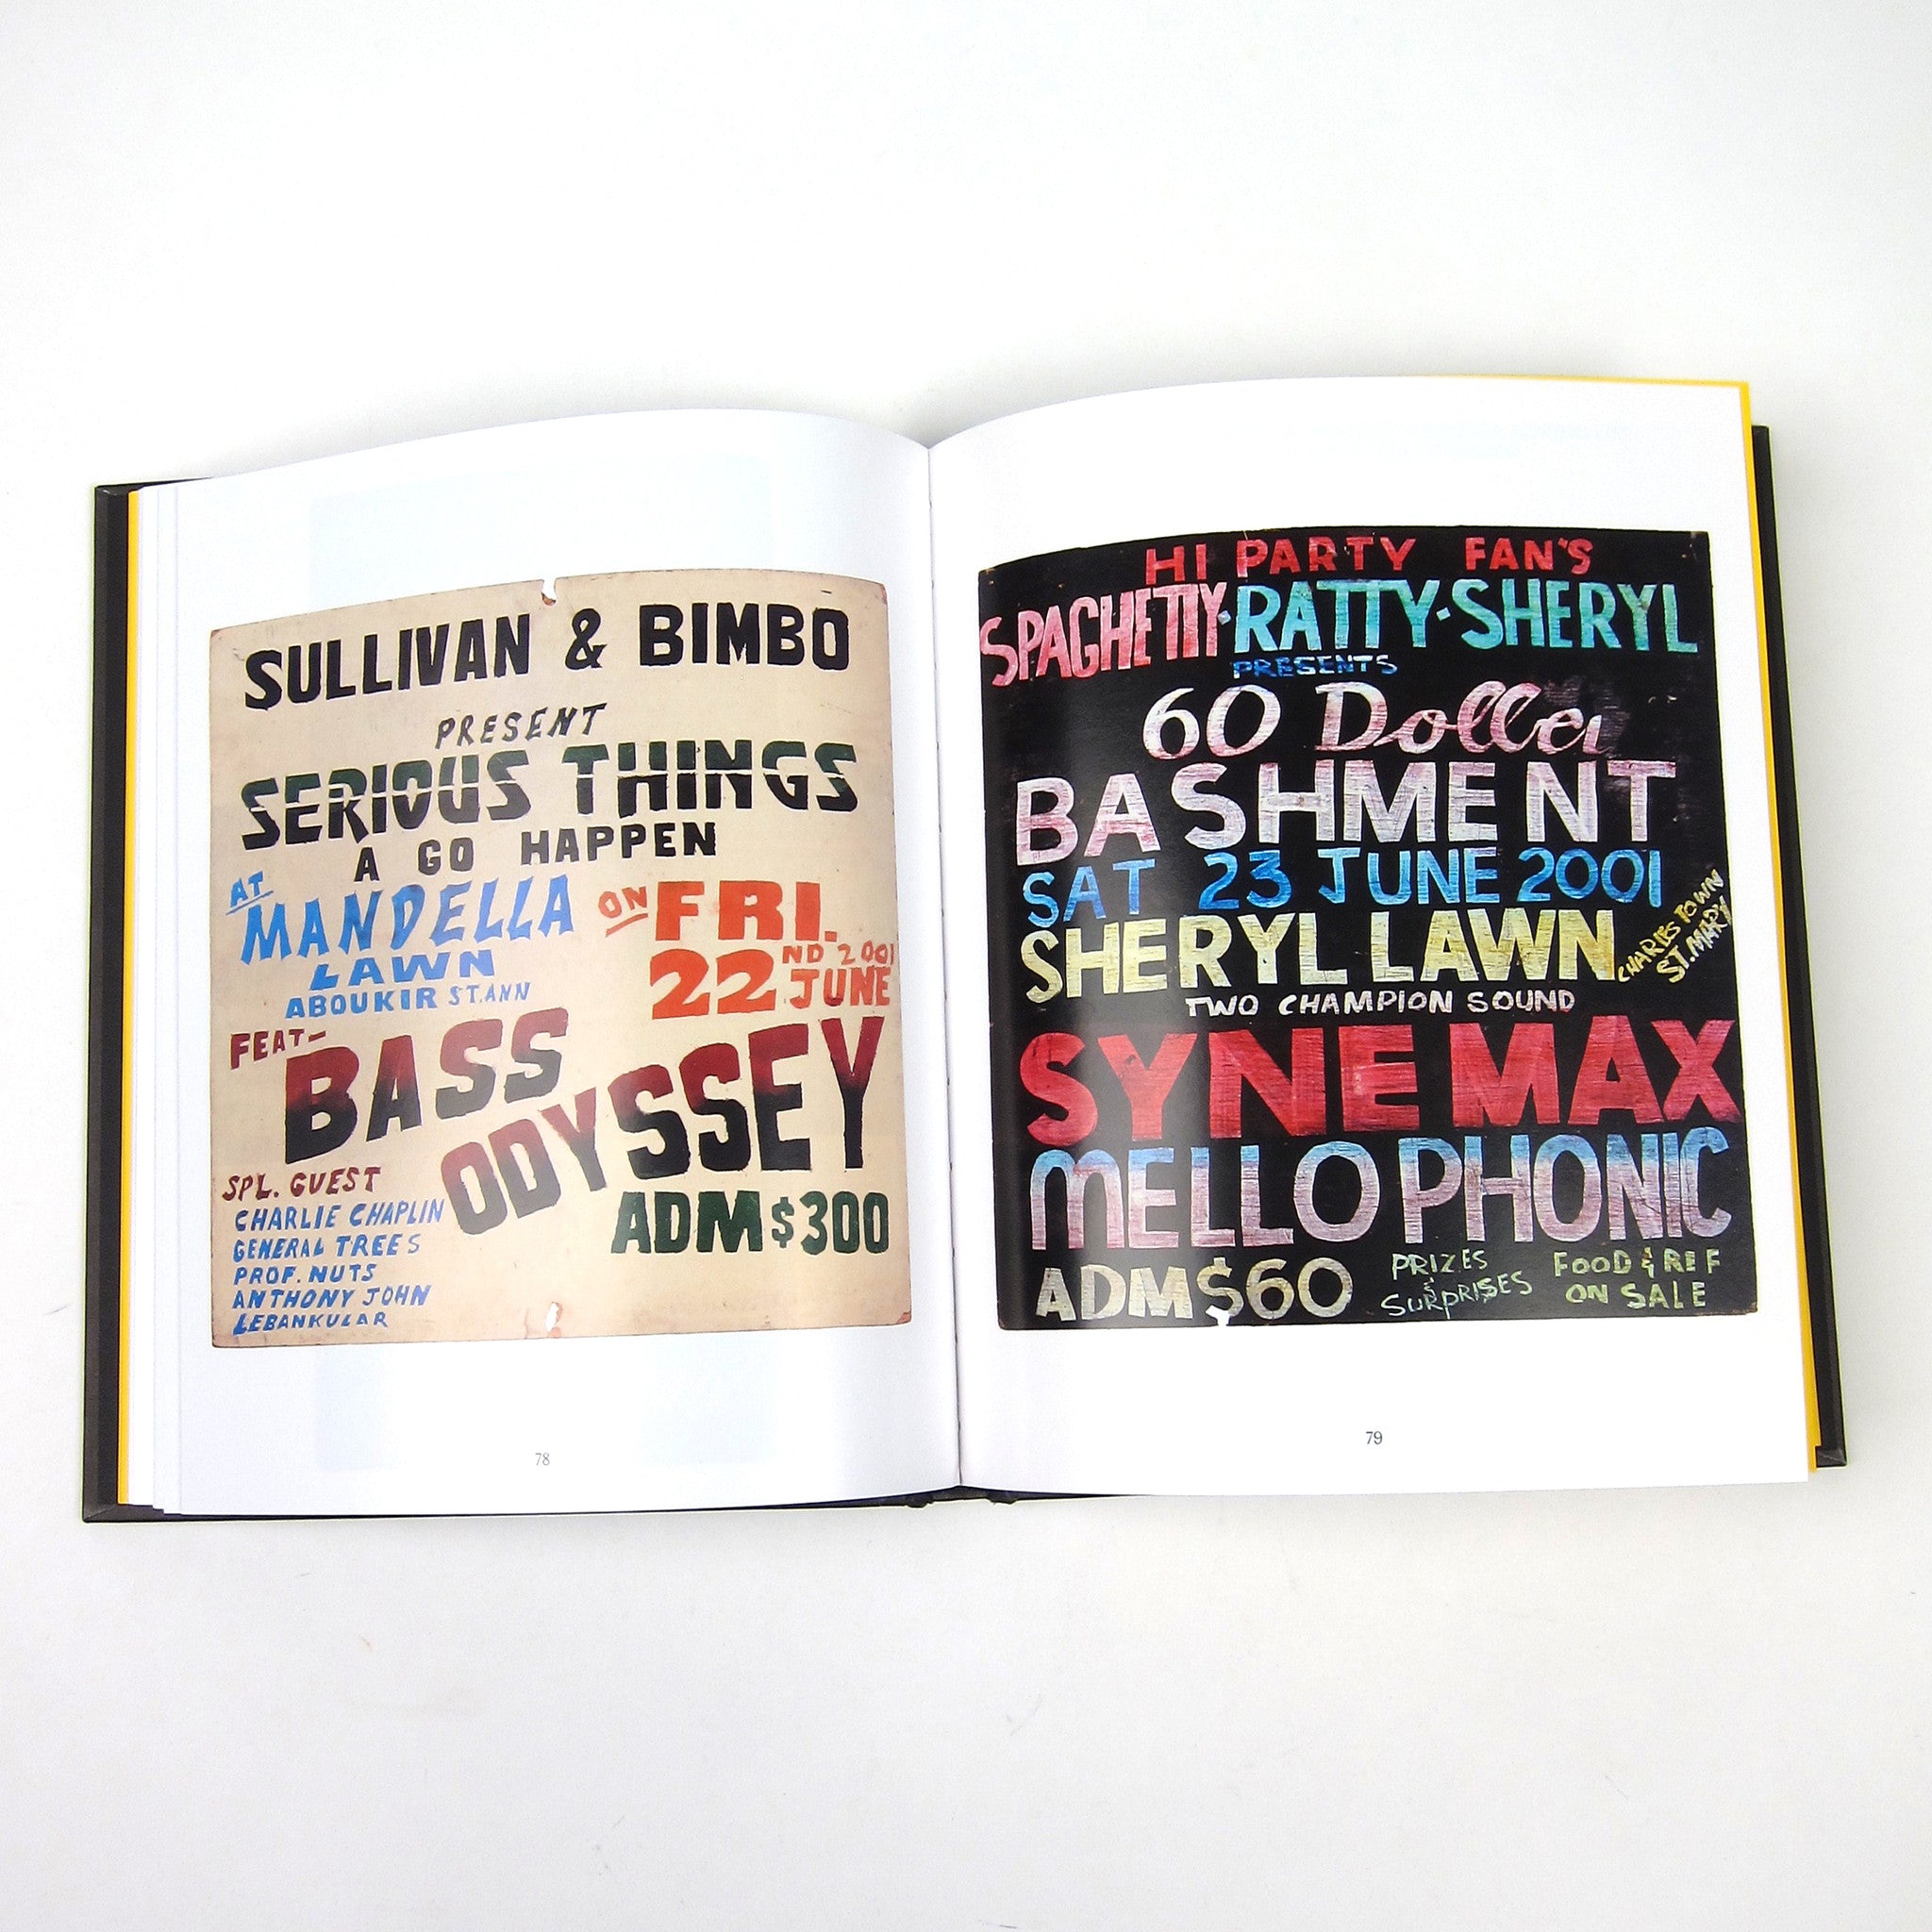 SULLIVAN & BIMBO
PRESENT
SERIOUS THINGS
A GO HAPPEN
AT
MANDELLA
LAWN
ABOUKIR ST.ANN
ON FRI.
22ND 2001
JUNE
FEAT-
BASS
ODYSSEY
SPL. GUEST
CHARLIE CHAPLIN
GENERAL TREES
PROF. NUTS
ANTHONY JOHN
LEBANKULAR
ADM $300
78
HI PARTY FAN'S
SPAGHETTY·RATTY·SHERYL
PRESENTS
60 Doller
BASHMENT
SAT 23 JUNE 2001
SHERYL LAWN
CHARLES TOWN
ST. MARY
TWO CHAMPION SOUND
SYNEMAX
MELLOPHONIC
ADM $60
PRIZES
&
SURPRISES
FOOD & REF
ON SALE
79